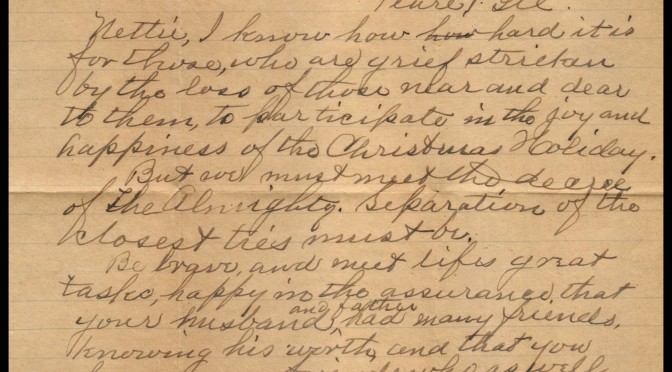 Pearl, Ill.
Nettie, I know how how hard it is
for those, who are grief strickan
by the loss of those near and dear
to them, to participate in the joy and
happiness of the Christmas Holiday.
But we must meet the decree
of the Almighty. Separation of the
closest ties must be.
Be brave, and meet lifes great
tasks, happy in the assurance that
your husband, and father had many friends,
knowing his worth, and that you
who as well